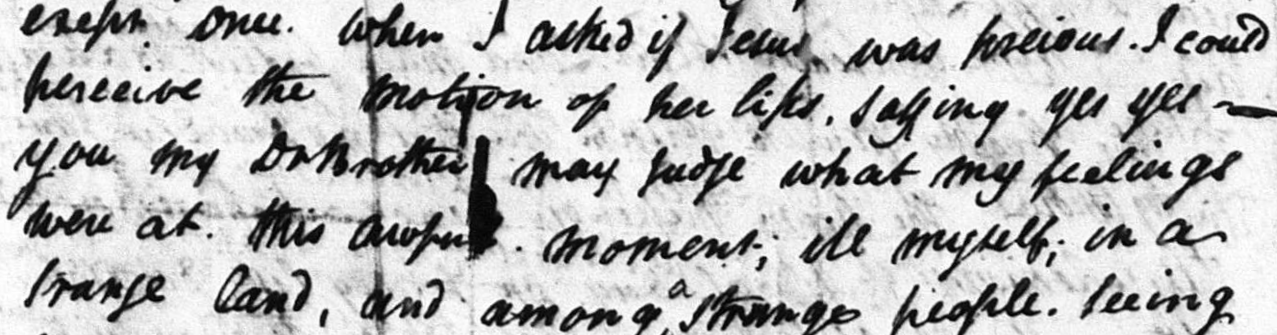 except once. when I asked if Jesus was precious. I could
perceive the motion of her lips. saying yes yes —
you my Dr Brother may judge what my feelings
were at. this awful. moment; ill myself; in a
strange land, and among a strange people. seeing